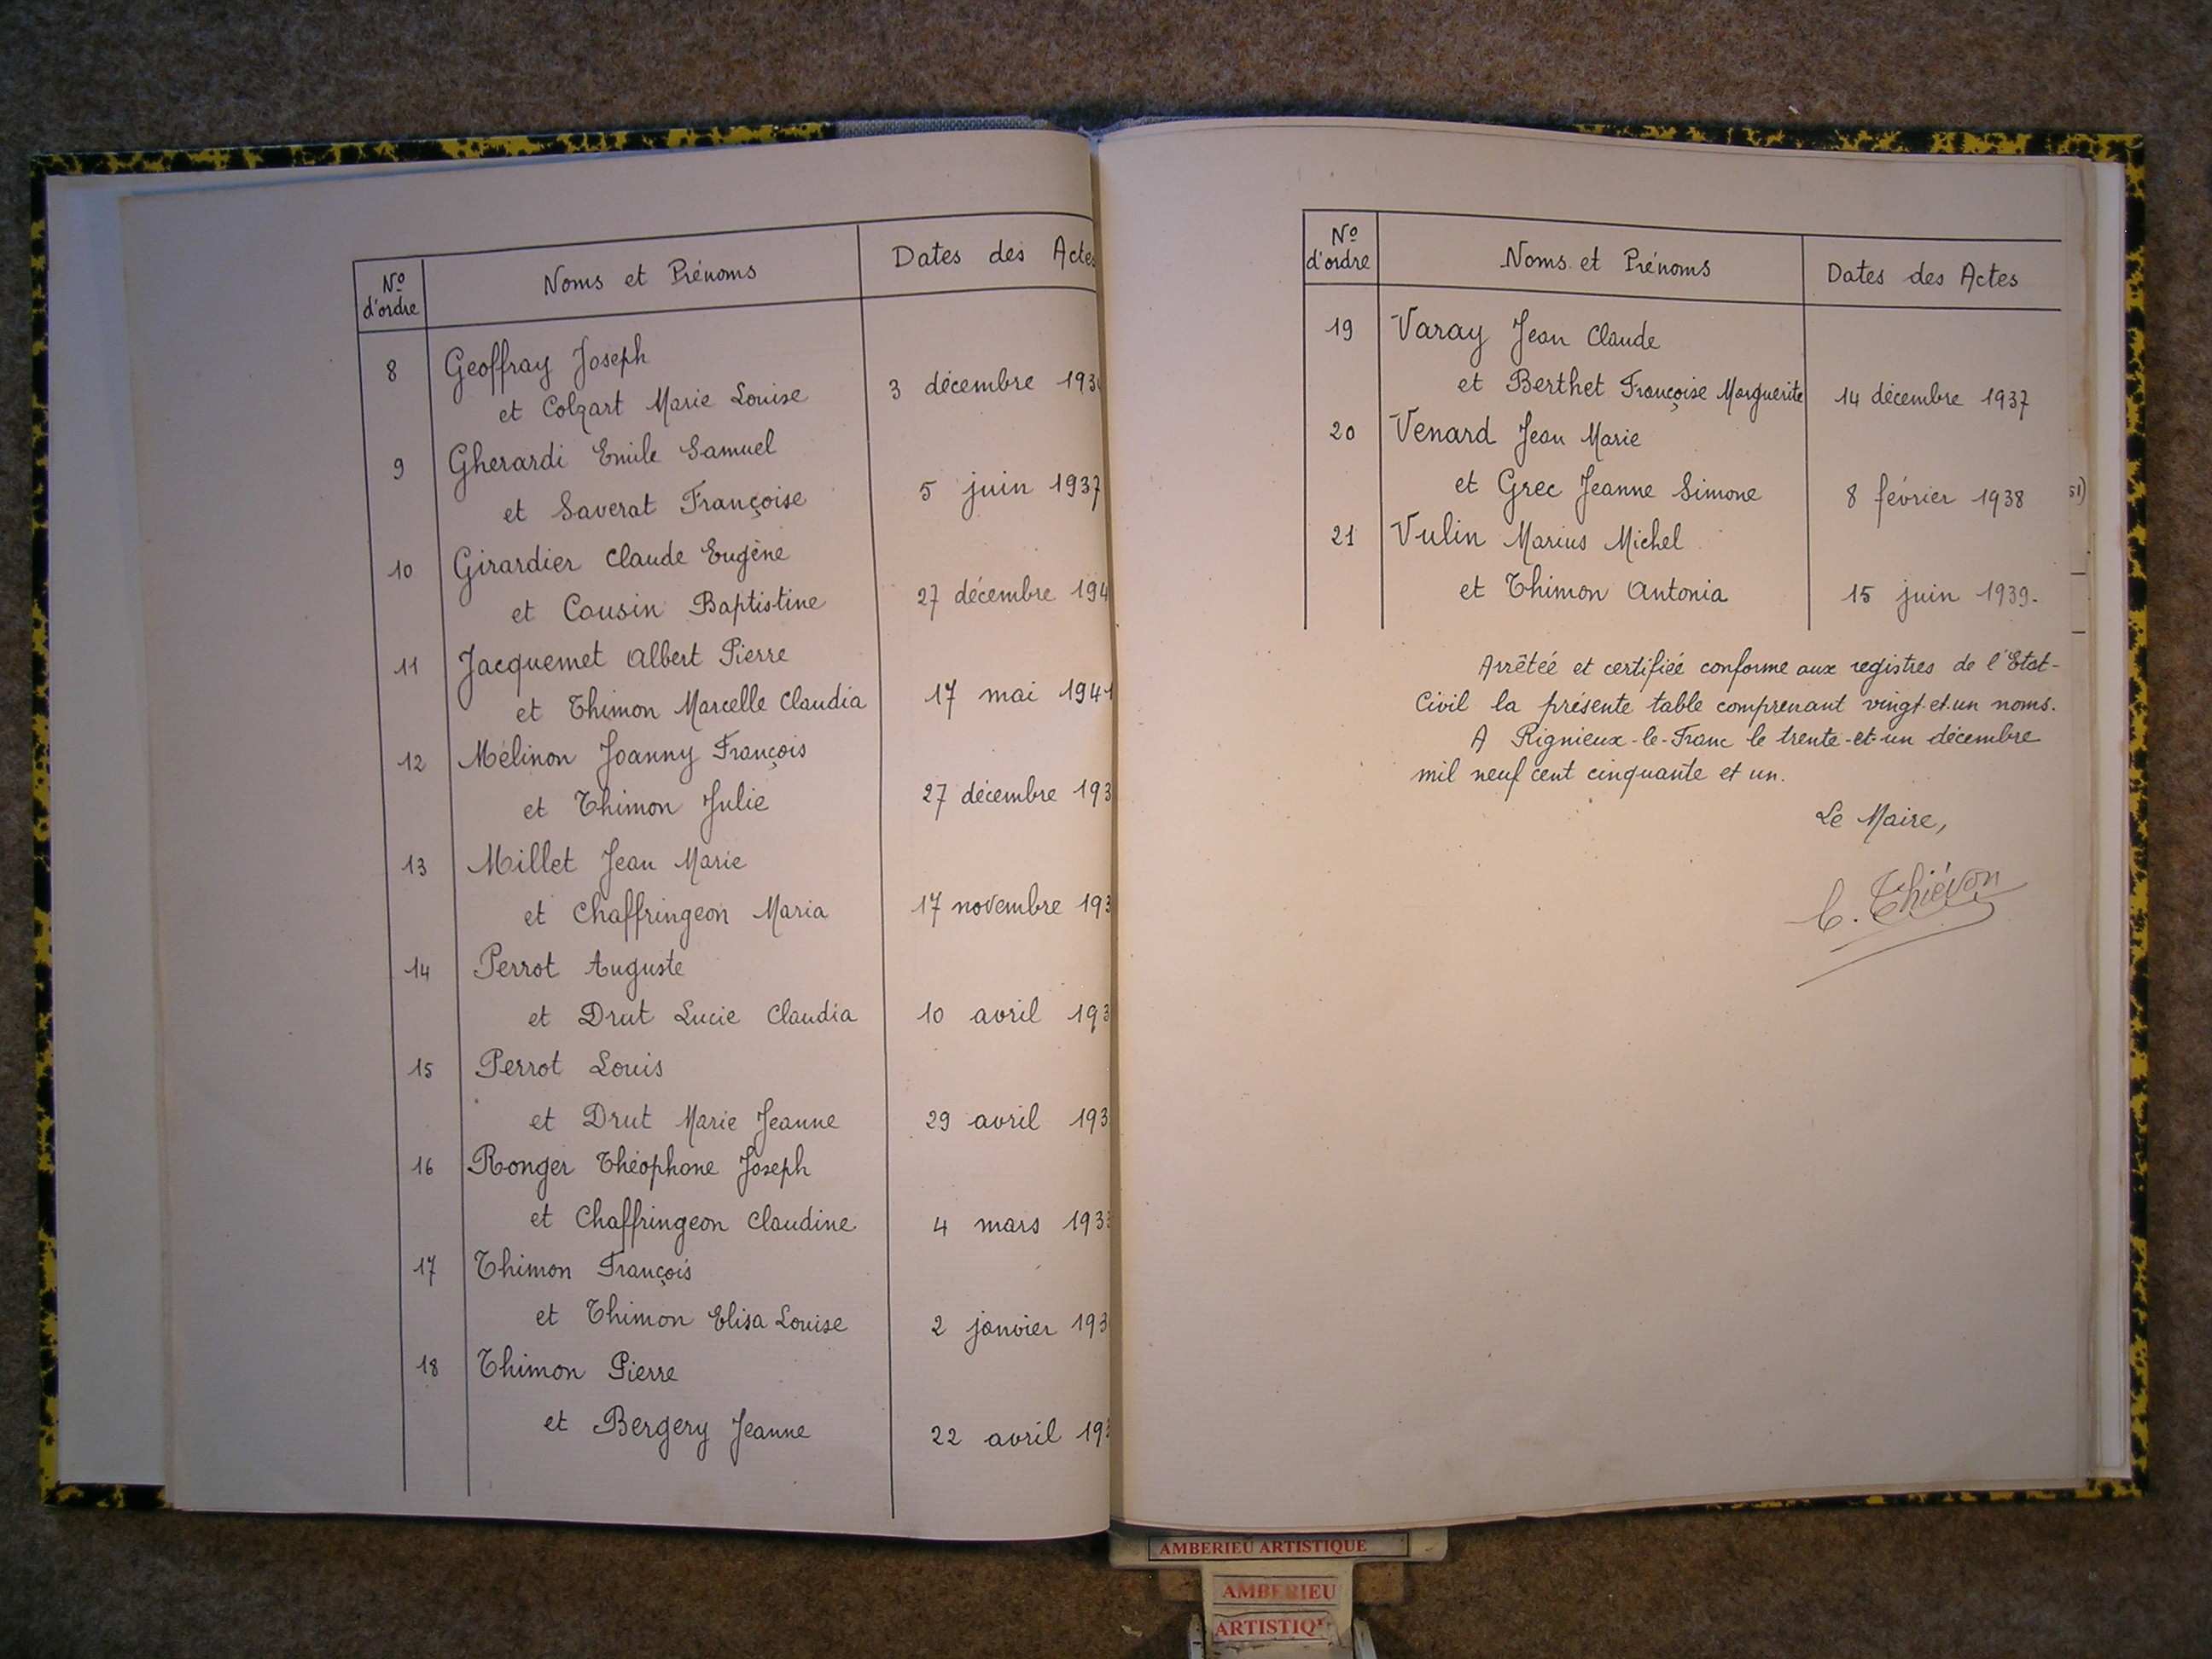 Nº d'ordre
Noms et Prénoms
Dates des Actes
8 Geoffray Joseph
et Colzart Marie Louise 3 décembre 193
9 Gherardi Emile Samuel
et Saverat Françoise 5 juin 1937
10 Girardier Claude Eugène
et Cousin Baptistine 27 décembre 194
11 Jacquemet Albert Pierre
et Thimon Marcelle Claudia 17 mai 1941
12 Mélinon Joanny François
et Thimon Julie 27 décembre 193
13 Millet Jean Marie
et Chaffringeon Maria 17 novembre 193
14 Perrot Auguste
et Drut Lucie Claudia 10 avril 193
15 Perrot Louis
et Drut Marie Jeanne 29 avril 193
16 Ronger Théophane Joseph
et Chaffringeon Claudine 4 mars 1933
17 Thimon François
et Thimon Elisa Louise 2 janvier 193
18 Thimon Pierre
et Bergery Jeanne 22 avril 193
Nº d'ordre
Noms et Prénoms
Dates des Actes
19 Varay Jean Claude
et Berthet Françoise Marguerite 14 décembre 1937
20 Venard Jean Marie
et Grec Jeanne Simone 8 février 1938
51)
21 Vulin Marius Michel
et Thimon Antonia 15 juin 1939.
Arrêtée et certifiée conforme aux registres de l'Etat-
Civil la présente table comprenant vingt-et-un noms.
A Rignieux-le-Franc le trente-et-un décembre
mil neuf cent cinquante et un.
Le Maire,
C. Thiévon
AMBERIEU ARTISTIQUE
AMBERIEU
ARTISTIQU